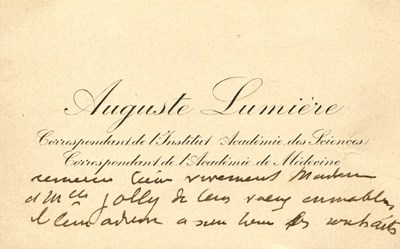 Auguste Lumière
Correspondant de l'Institut (Académie des Sciences)
Correspondant de l'Académie de Médecine
remercie bien vivement Madame
et Mlle Jolly de leurs voeux aimables
et leur adresse à son tour ses souhaits